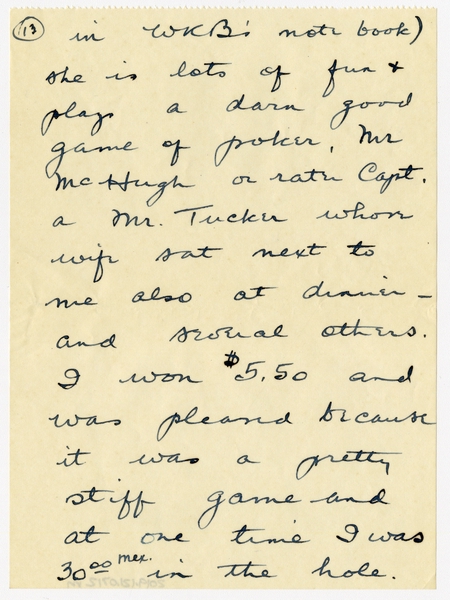 13
in WKB's note book)
she is lots of fun +
plays a darn good
game of poker, Mr
McHugh or rater Capt.
a Mr. Tucker whose
wife sat next to
me also at dinner –
and several others.
I won $5.50 and
was pleased because
it was a pretty
stiff game and
at one time I was
30.00 mex. in the hole.